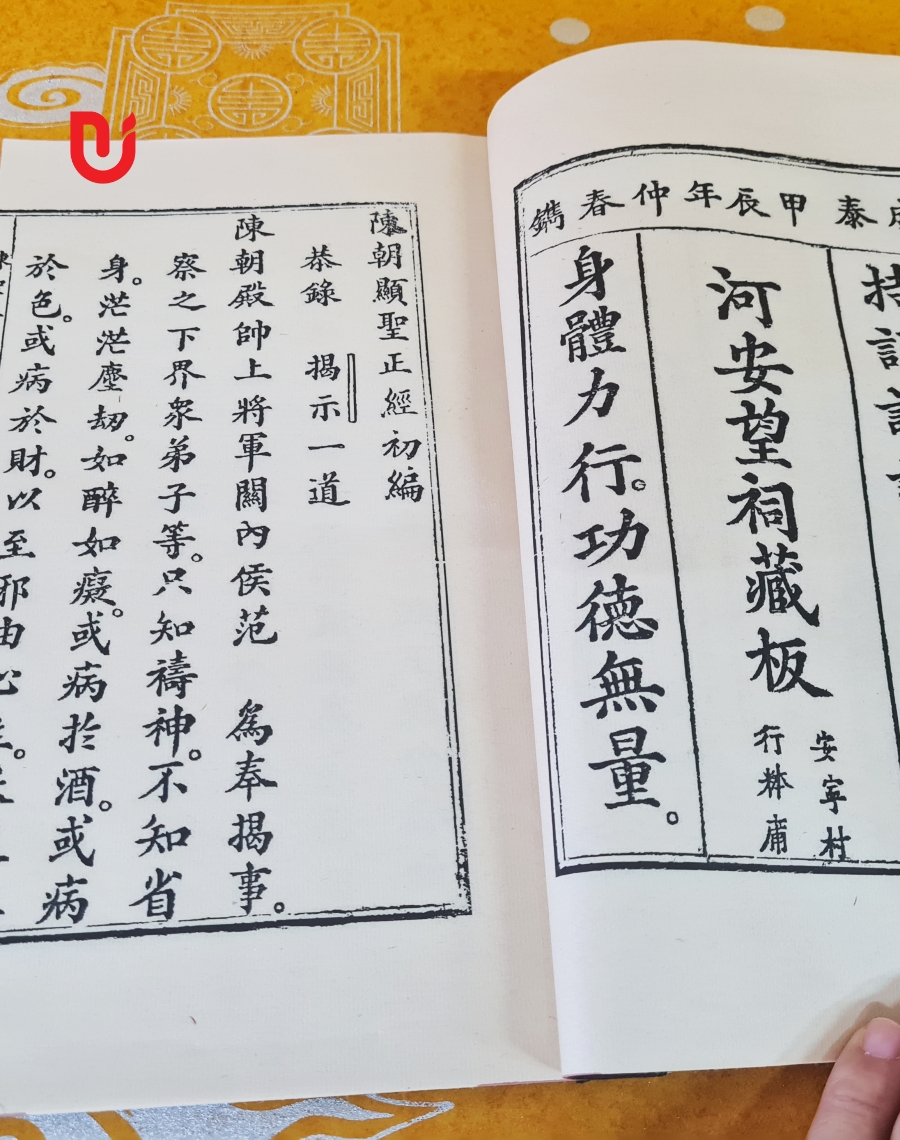 泰甲辰年仲春鐫
河安望祠藏板
安寧村
行 庯
身體力行。功德無量。
陳朝顯聖正經初編
恭錄 揭示一道
陳朝殿帥上將軍關內侯范 爲奉揭事。
察之下界衆弟子等。只知禱神。不知省
身。茫茫塵刼。如醉如癡。或病於酒。或病
於色。或病於財。以至邪由心